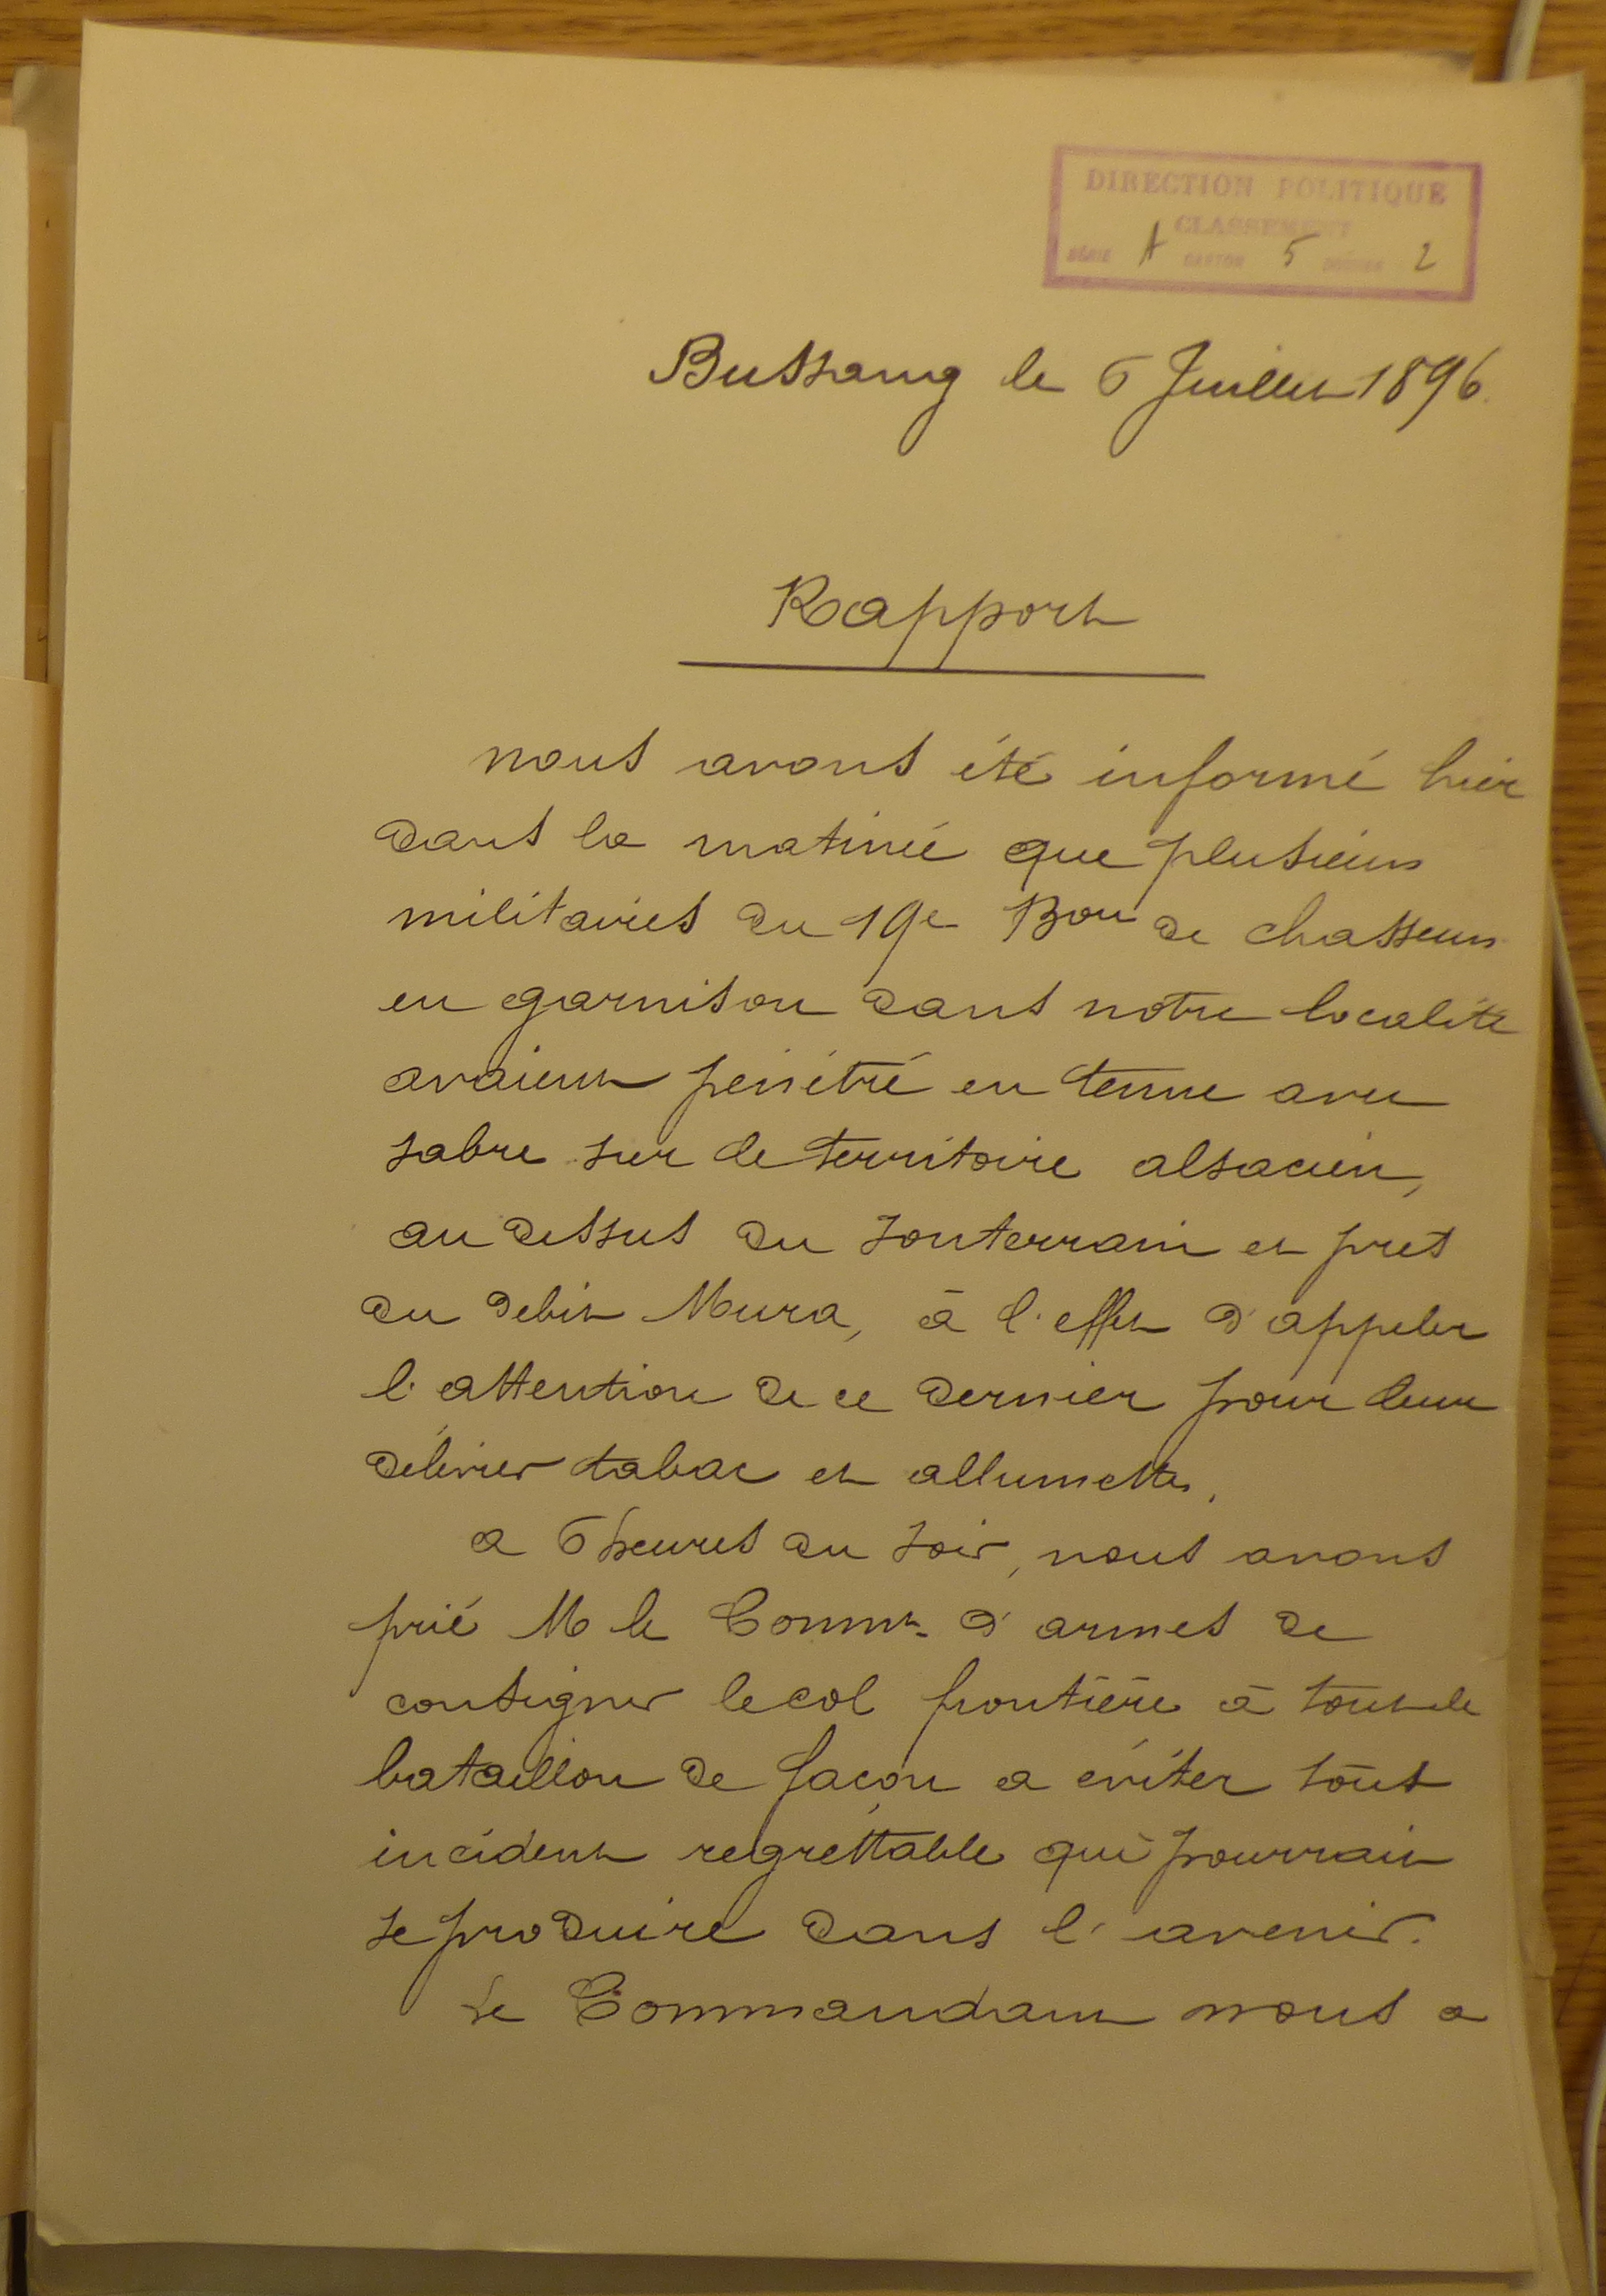 DIRECTION POLITIQUE
CLASSEMENT
SÉRIE A CARTON 5 DOSSIER 2
Bussang le 6 Juillet 1896.
Rapport
nous avons été informé hier
dans la matinée que plusieurs
militaires du 19e Bon de chasseurs
en garnison dans notre localité
avaient pénétré en tenue avec
sabre sur le territoire alsacien,
au dessus du souterrain et près
du débit Mura, à l'effet d'appeler
l'attention de ce dernier pour leur
délivrer tabac et allumettes.
a 6 heures du soir, nous avons
prié M le Commt d'armes de
consigner le col frontière à tout le
bataillon de façon a éviter tout
incident regrettable qui pourrait
se produire dans l'avenir.
Le Commandant nous a